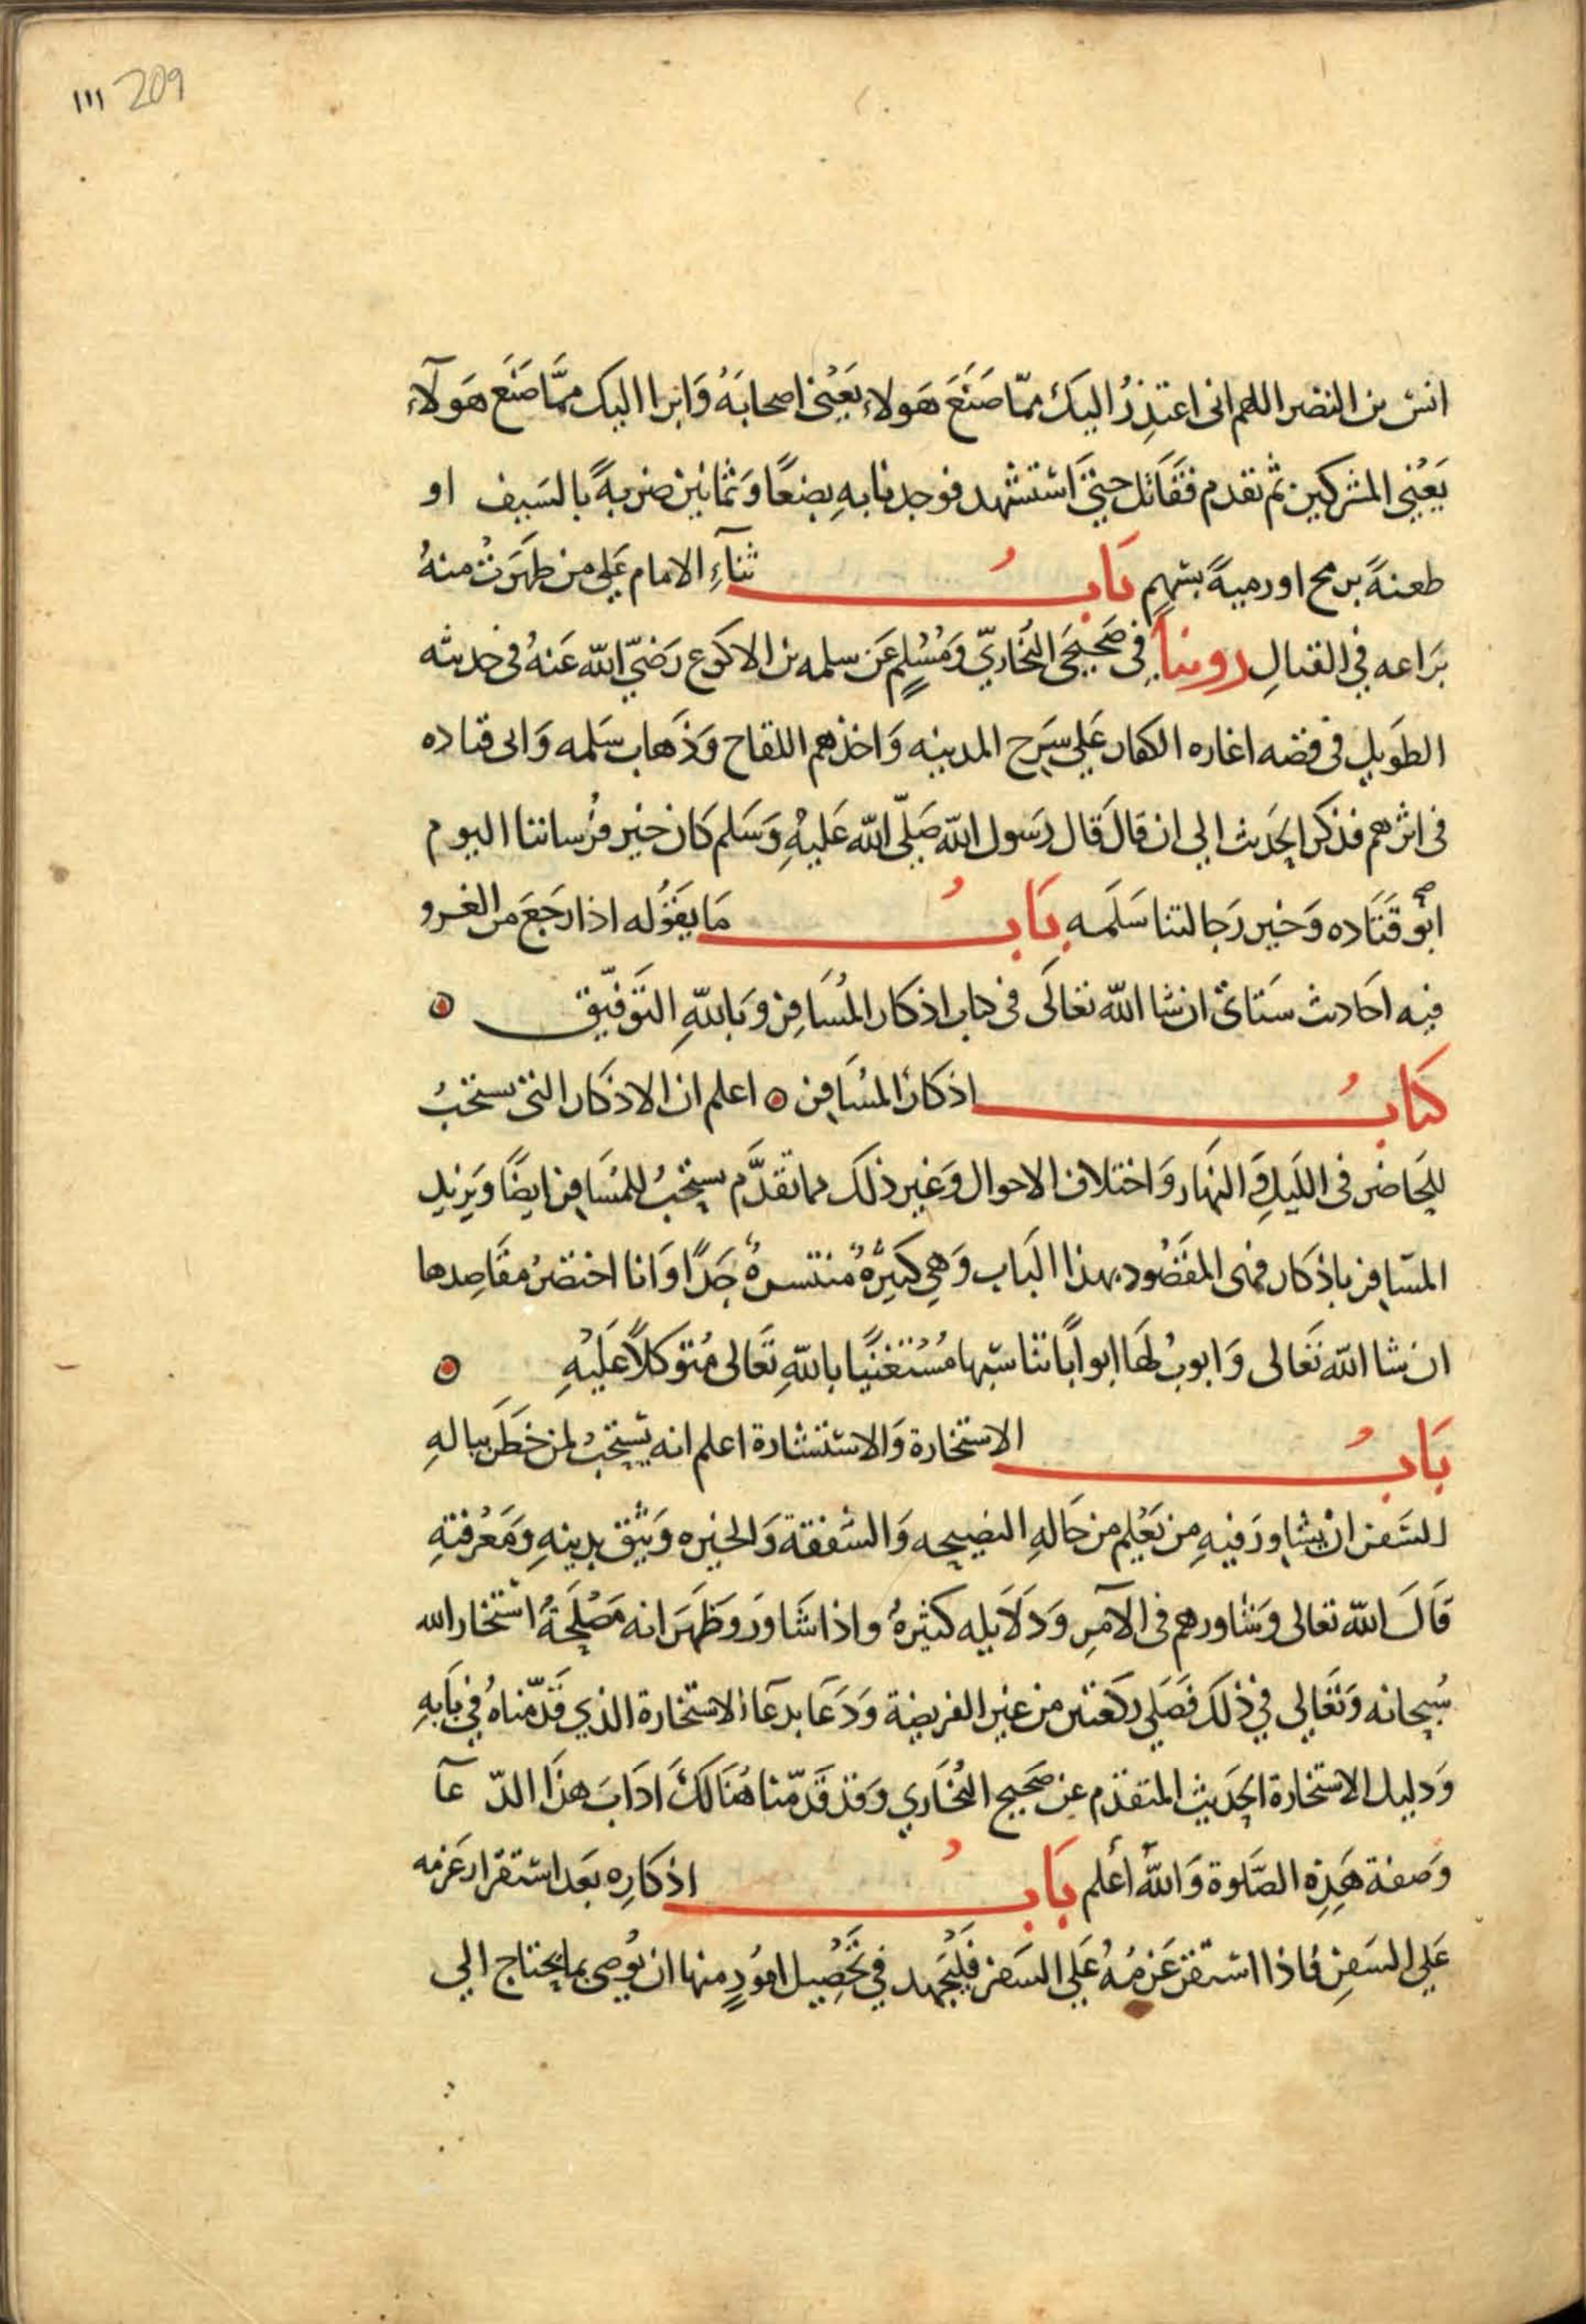 ١١١ 209
انس بن النضر اللهم انى اعتذِرُ اليكَ ممّا صَنَعَ هَولاءِ يَعْنِى اصحابَهُ وَابرا اليك ممَّا صَنَع هَولآءِ
يَعْنِي المشركين ثم تقدم فقَاتل حتىَّ اسْتشهد فوجدنا بهِ بضعًا وَثمانين ضربةً بالسَيف او
طعنةً برمح او رميةً بسَهمٍ بَابُ ثنآءِ الامام عَلى من ظهَرَتْ منهُ
بَرَاعه فِي القتالِ روينا فِى صَحيحَى البُخَاريّ وَمُسْلِمٍ عَن سلمه بن الاكوع رَضيَ الله عَنهُ فى حديثه
الطَويل فى قصه اغاره الكفار عَلى سَرح المدينه وَاخذهم اللقاح وَذَهاب سَلمه وَابى قتاده
فى اثرهم فذكر الحَديث الى ان قالَ قَال رَسول الله صَلّى الله عَليهِ وَسَلم كَان خير فُرساننا اليوم
ابُو قَتَاده وَخير رَجالتنا سَلَمه بَابُ مَا يقوُله اذا رجَعَ من الغزو
فيه احَاديث سَتاتى ان شا الله تعَالَى فى كتاب اذكار المُسَافِر وَبَاللهِ التَوفيّق
كتابُ اذكار المسُافِر ٥ اعلم ان الاذكار التى تستحَبُ
للحَاضر فى الليلِ وَالنهَار وَاختلاف الاحوال وَغير ذلك مما تقدَّم يستحَبُ للمُسَافِر ايضًا وَيَزيد
المسَافِر باذكار فهى المقصُود بهذا البَاب وَهي كثيَرةٌ مُنتشرةٌ جَدًا وَانا اختصرُ مقَاصِدها
ان شا الله تعَالى وَابوبُ لهَا ابوابًا تناسبُها مُسْتعْنيًا باللهِ تعَالى مُتوَكلاً عَليْهِ
بَابُ الاستخارة وَالاستشارة اعلم انه يَستحَبُ لمن خطَر ببالهِ
السَفر ان يشاورَ فيهِ من يَعْلم من حَالهِ النصيحه وَالشفقة وَالخبره وَيثق بدينهِ وَمَعْرفتهِ
قَالَ الله تعَالى وَشاورهم فى الآمرِ وَدَلاَيله كثيرهُ واذا شَاوَرَ وَظهَرَ انه مَصْلحَةٌ اسْتخار الله
سُبحانه وَتعَالى فِي ذلكَ فصَلى ركعَتين من غير الفريضة وَدَعَا بدعَآ الاستخارة الذي قَدّمنَاهُ فِي بَابهِ
وَدليل الاستخارة الحَديث المتقدّم عن صَحيح البُخَاري وَقد قَدّمنا هُنَالكَ ادَابَ هذَا الدّ عآ
وَصفة هَذِهِ الصَلوة وَاللهُ أعلم بَابُ اذكارِه بَعد استقرار عَزمه
عَلى السَفرِ فاذا استقر عَزمُهُ عَلى السَفر فَليجْهد فِي تحَصِيل امُورٍ منها ان يُوصى بما يحتاج الى